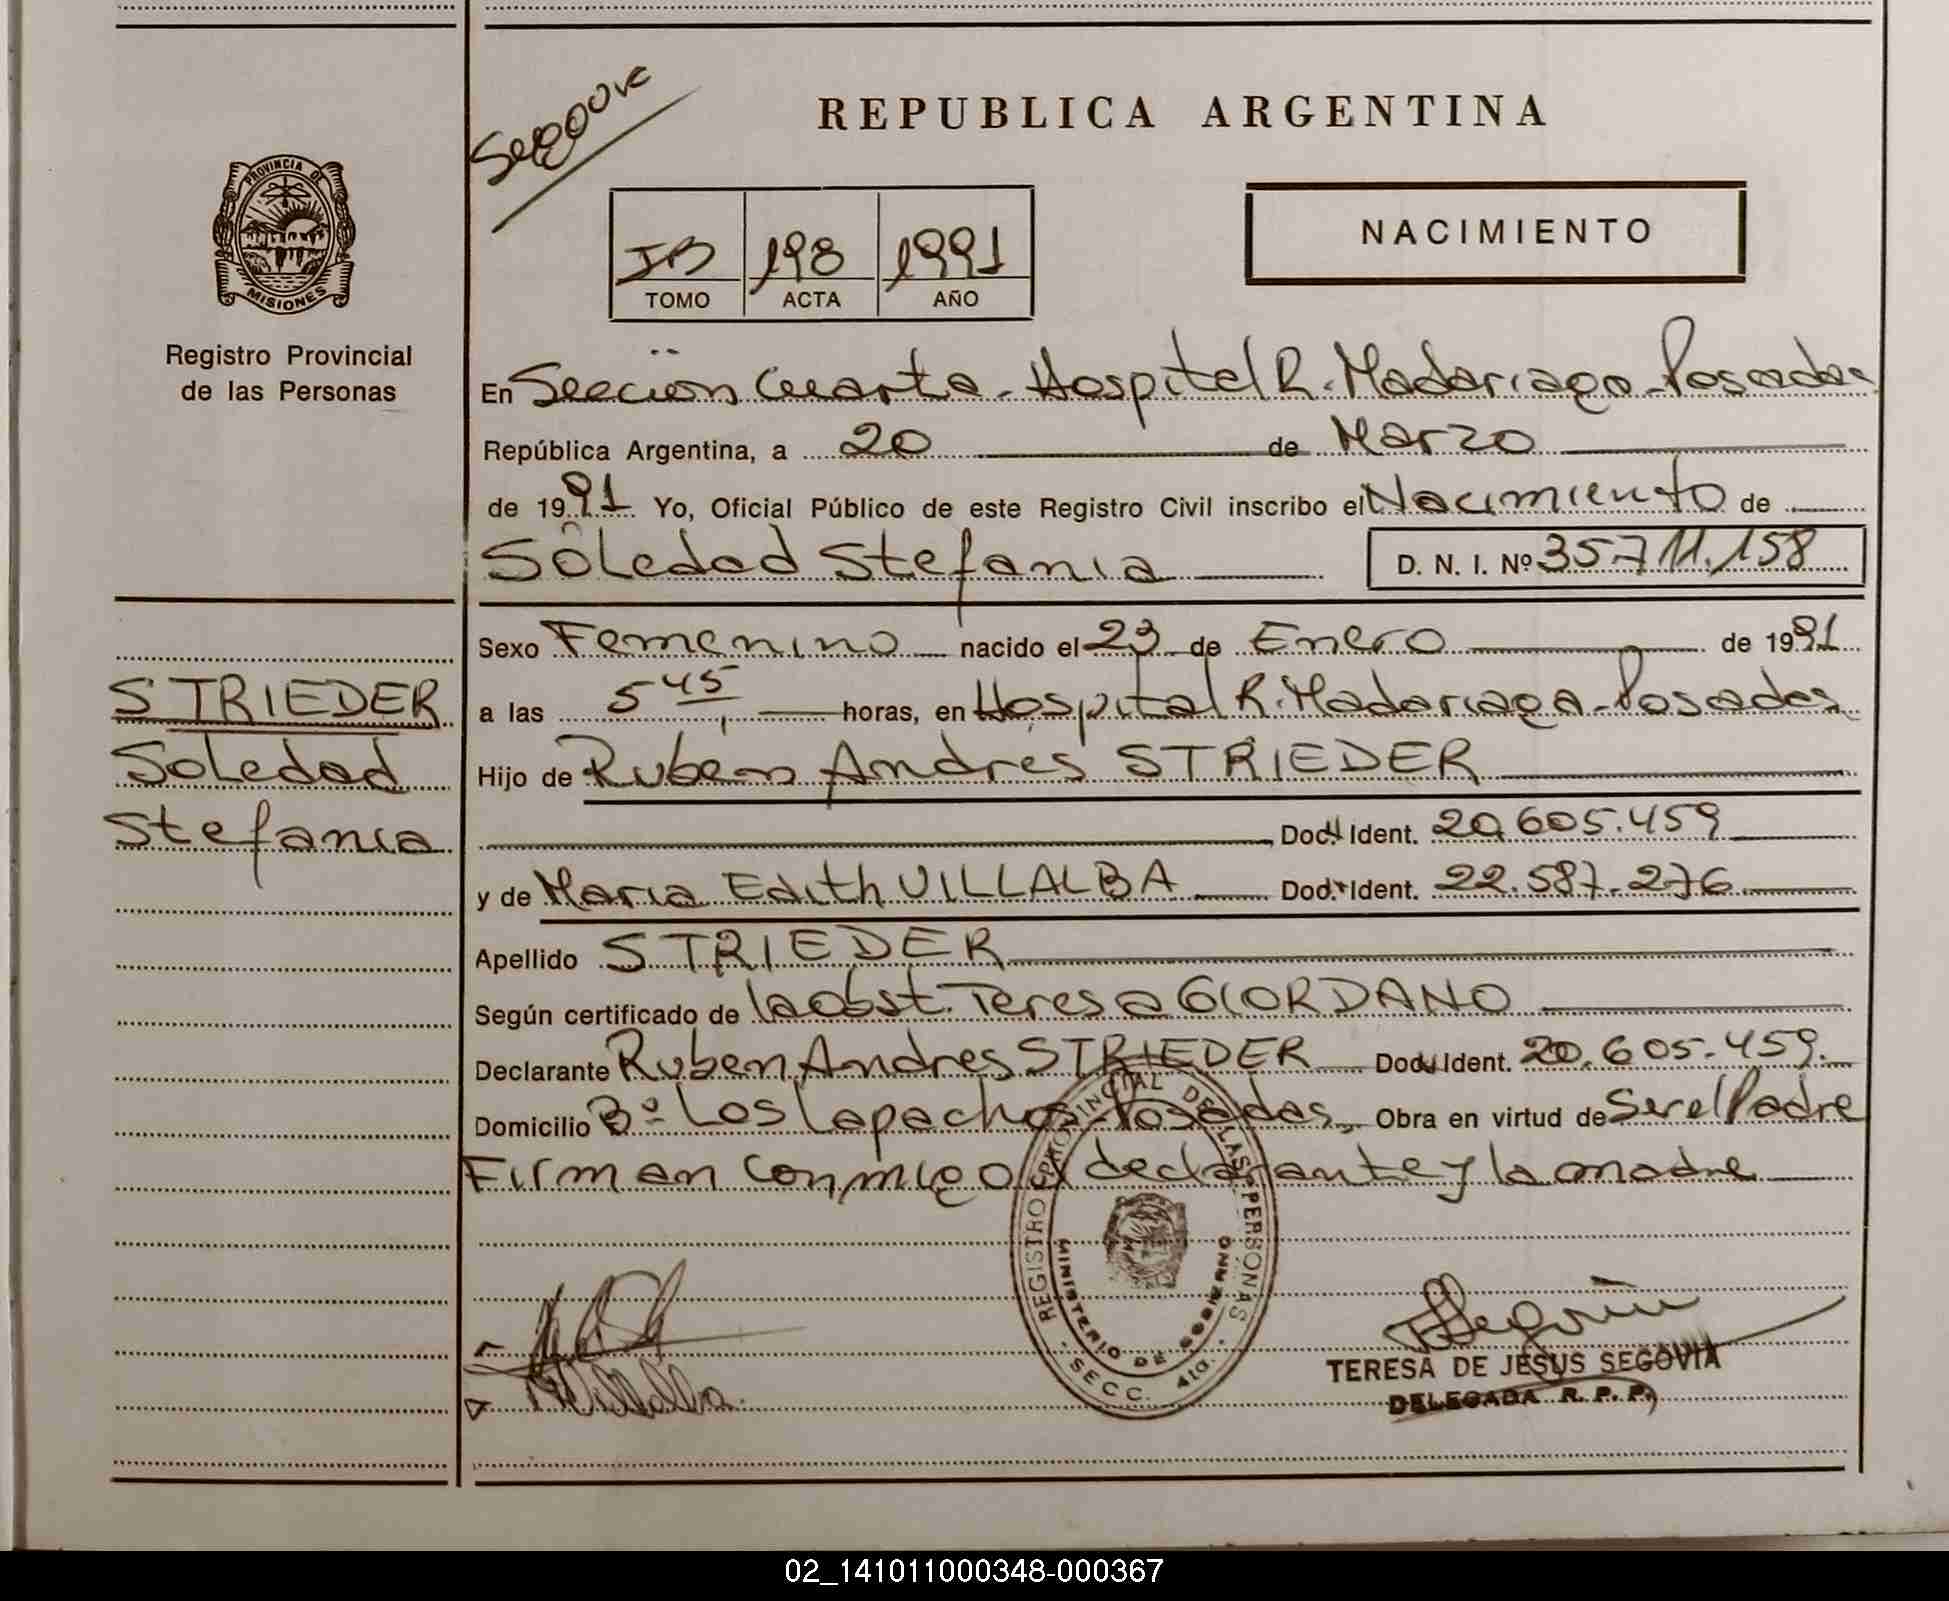 Segovia
REPUBLICA ARGENTINA
PROVINCIA DE
MISIONES
Registro Provincial
de las Personas
IB 198 1991
TOMO ACTA AÑO
NACIMIENTO
En Sección Cuarta - Hospital R. Madariaga - Posadas
República Argentina, a 20 de Marzo
de 1991 Yo, Oficial Público de este Registro Civil inscribo el Nacimiento de
Soledad Stefania D. N. I. Nº 35711.158
STRIEDER
Soledad
Stefania
Sexo Femenino nacido el 23 de Enero de 1991
a las 5 45 horas, en Hospital R. Madariaga - Posadas
Hijo de Ruben Andres STRIEDER
Doc. Ident. 20.605.459
y de Maria Edith VILLALBA Doc. Ident. 22.587.276
Apellido STRIEDER
Según certificado de la obst. Teresa GIORDANO
Declarante Ruben Andres STRIEDER Doc. Ident. 20.605.459.
Domicilio Bº Los Lapachos - Posadas, Obra en virtud de Ser el Padre
Firman conmigo el declarante y la madre
REGISTRO PROVINCIAL DE LAS PERSONAS
MINISTERIO DE GOBIERNO
SECC. 4ta.
TERESA DE JESUS SEGOVIA
DELEGADA R. P. P.
02_141011000348-000367